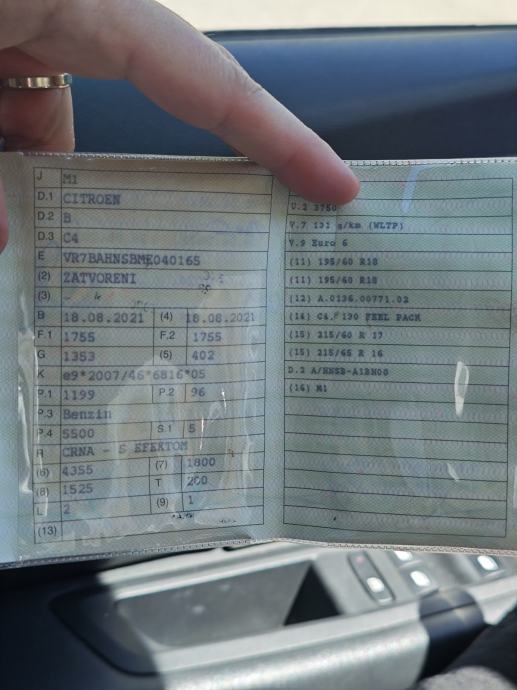 J M1
D.1 CITROEN
D.2 B
D.3 C4
E VR7BAHNSBME040165
(2) ZATVORENI
(3) -
B 18.08.2021 (4) 18.08.2021
F.1 1755 F.2 1755
G 1353 (5) 402
K e9*2007/46*6816*05
P.1 1199 P.2 96
P.3 Benzin
P.4 5500 S.1 5
R CRNA - S EFEKTOM
(6) 4355 (7) 1800
(8) 1525 T 200
L 2 (9) 1
(13)
U.2 3750
V.7 131 g/km (WLTP)
V.9 Euro 6
(11) 195/60 R18
(11) 195/60 R18
(12) A.0136.00771.02
(14) C4, 130 FEEL PACK
(15) 215/60 R 17
(15) 215/65 R 16
D.2 A/HNSB-A1BH00
(16) M1